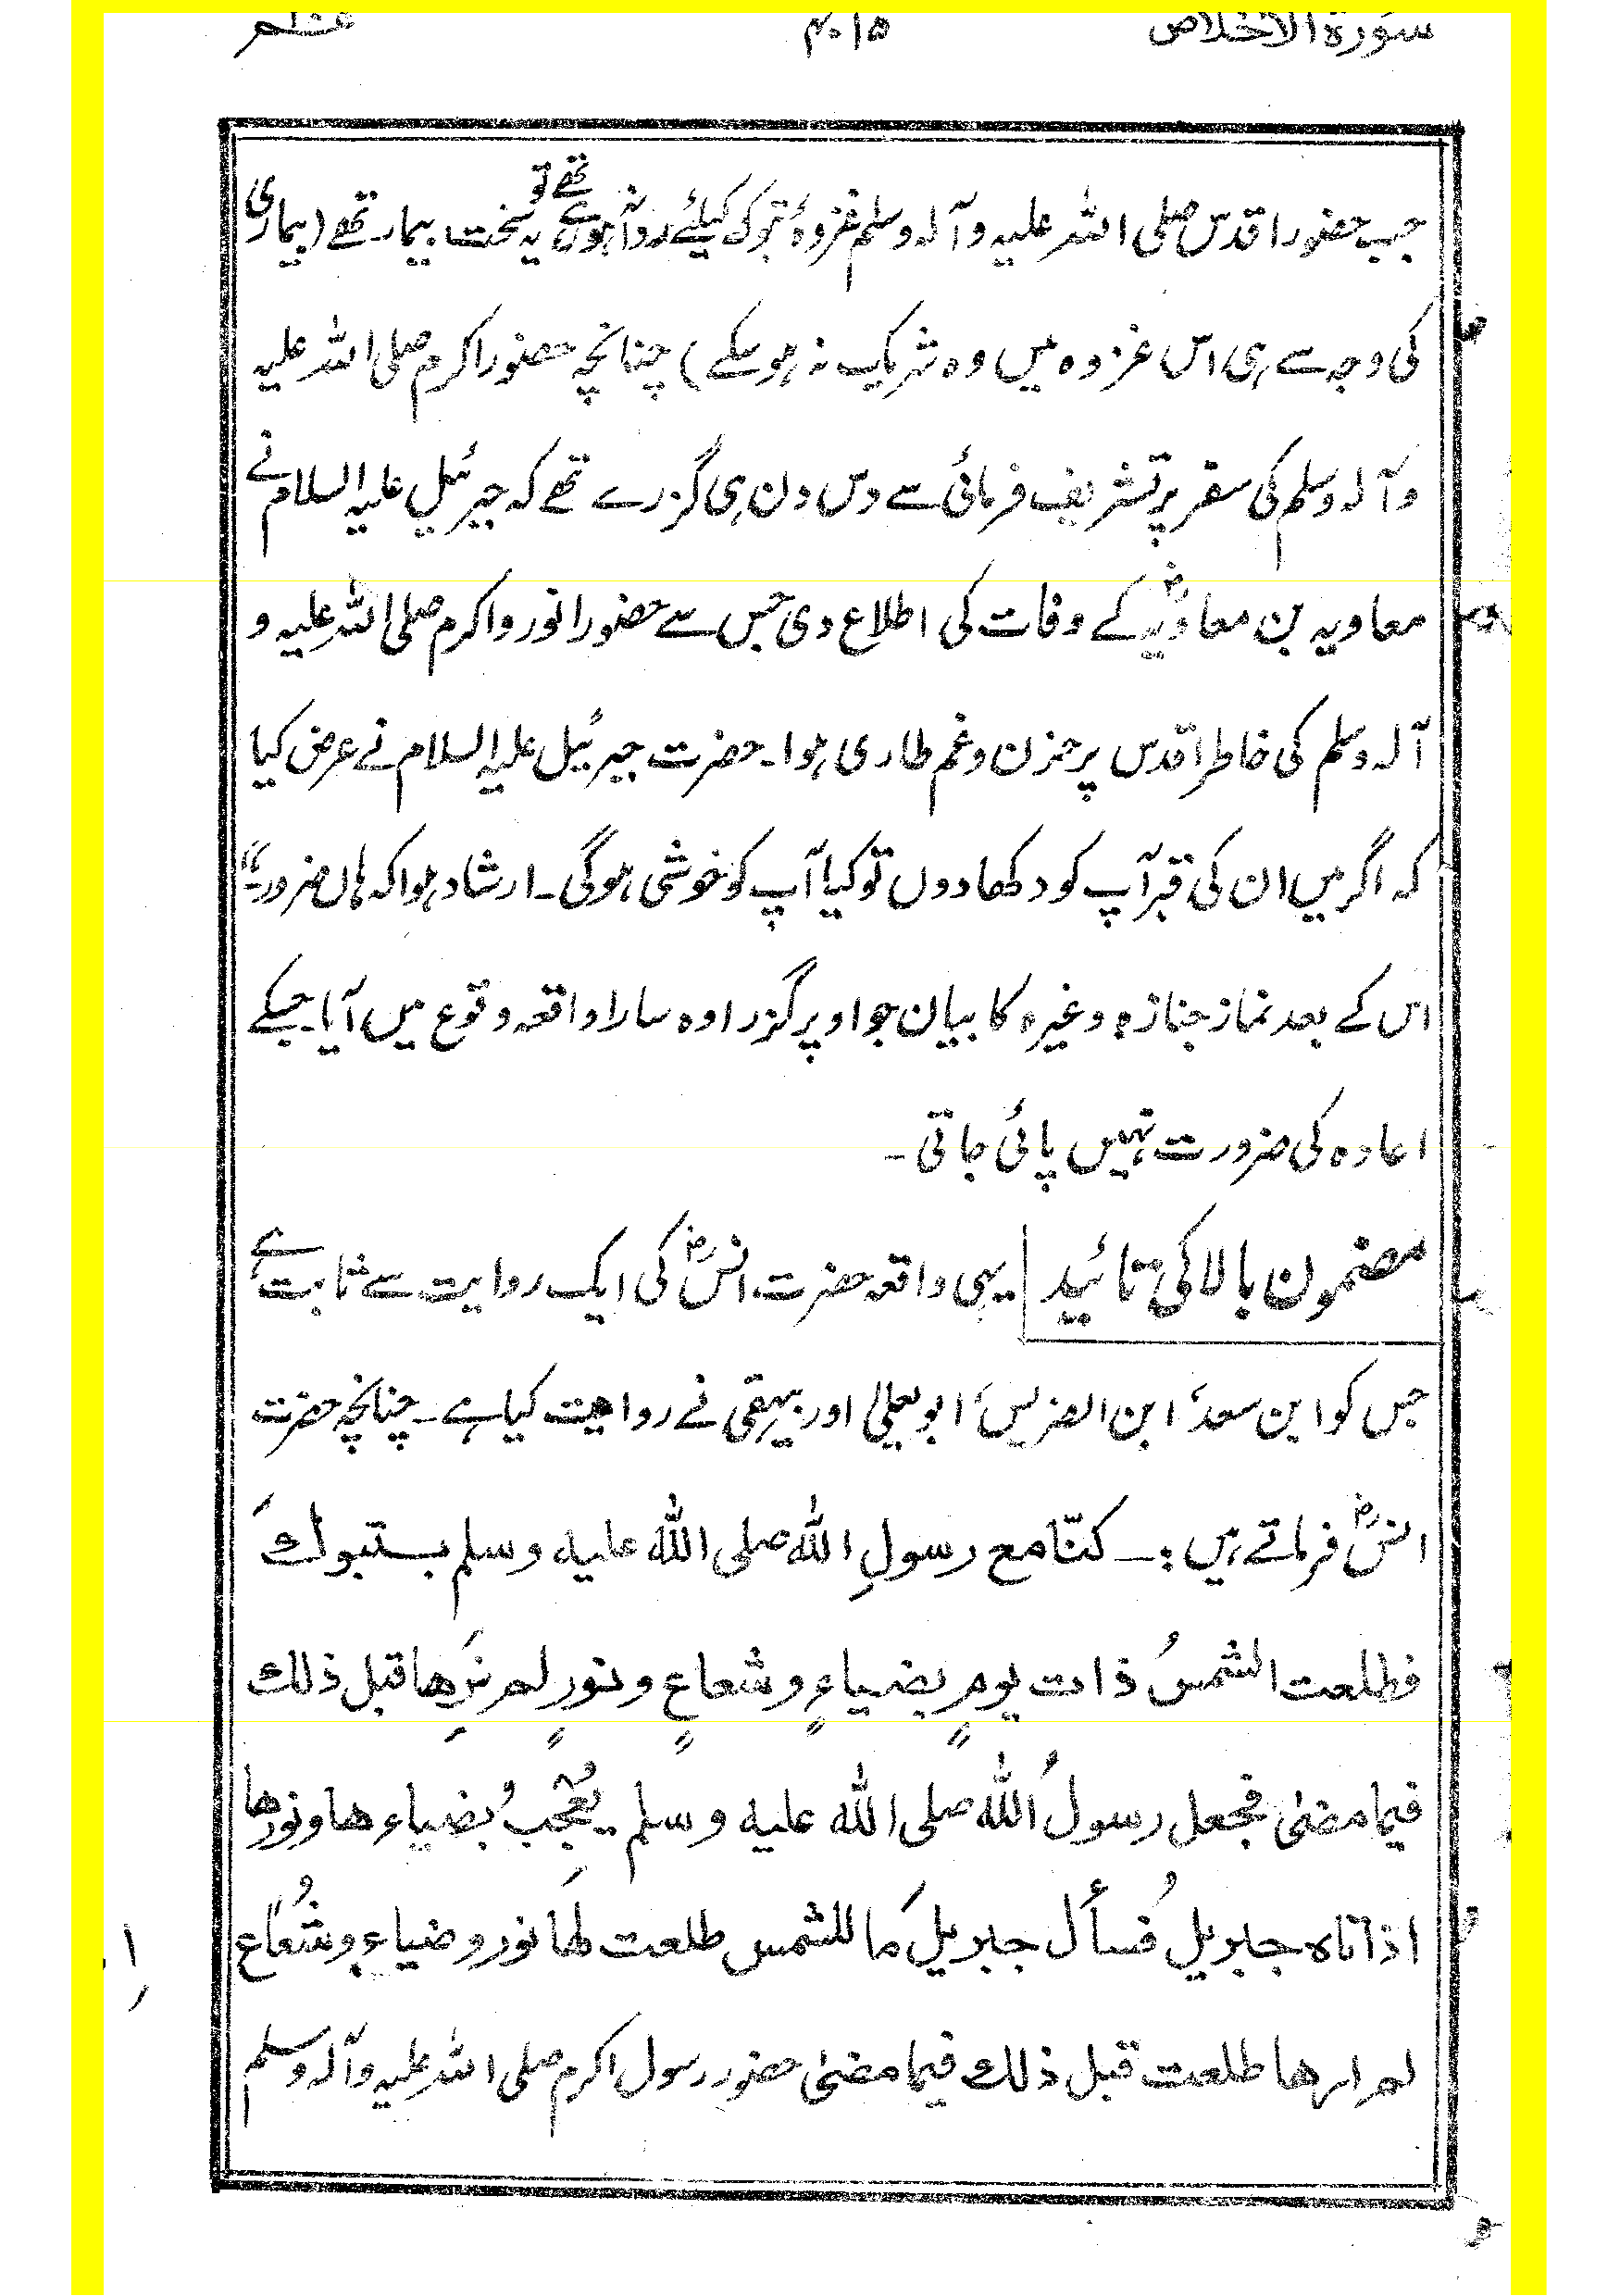 سورۃ الاخلاص ۴۰۱۵ عــم
جب حضور اقدس صلی اللہ علیہ وآلہ وسلم غزوۂ تبوک کیلئے روانہ ہوئے تھے تو یہ سخت بیمار تھے (بیماری
کی وجہ سے ہی اس غزوہ میں وہ شریک نہ ہو سکے) چنانچہ حضور اکرم صلی اللہ علیہ
وآلہ وسلم کی سفر پر تشریف فرمائی سے دس دن ہی گزرے تھے کہ جبرئیل علیہ السلام نے
معاویہ بن معاویہؓ کے وفات کی اطلاع دی جس سے حضور انور واکرم صلی اللہ علیہ و
آلہ وسلم کی خاطر اقدس پر حزن وغم طاری ہوا۔ حضرت جبرئیل علیہ السلام نے عرض کیا
کہ اگر میں ان کی قبر آپ کو دکھا دوں تو کیا آپ کو خوشی ہوگی۔ ارشاد ہوا کہ ہاں ضرور۔"
اس کے بعد نماز جنازہ وغیرہ کا بیان جو اوپر گزرا وہ سارا واقعہ وقوع میں آیا۔ جسکے
اعادہ کی ضرورت نہیں پائی جاتی۔
مضمون بالا کی تائید یہی واقعہ حضرت انسؓ کی ایک روایت سے ثابت ہے
جس کو ابن سعد، ابن الضریس، ابو یعلیٰ اور بیہقی نے روایت کیا ہے۔ چنانچہ حضرت
انسؓ فرماتے ہیں :۔ کنّا مع رسولِ اللہ صلی اللہ علیہ وسلم بتبوکَ
فطلعت الشمسُ ذات یومٍ بضیاءٍ وشعاعٍ ونورٍ لم نَرِھا قبل ذلک
فیما مضیٰ فجعل رسولُ اللہ صلی اللہ علیہ وسلم یُعْجِبُ بضیاءھا ونورھا
اذ اتاہ جبریلُ فسأل جبریلَ ما للشمس طلعت لھا نور وضیاء وشُعَاع
لم ارھا طلعت قبل ذلک فیما مضیٰ حضور رسول اکرم صلی اللہ علیہ وآلہ وسلم